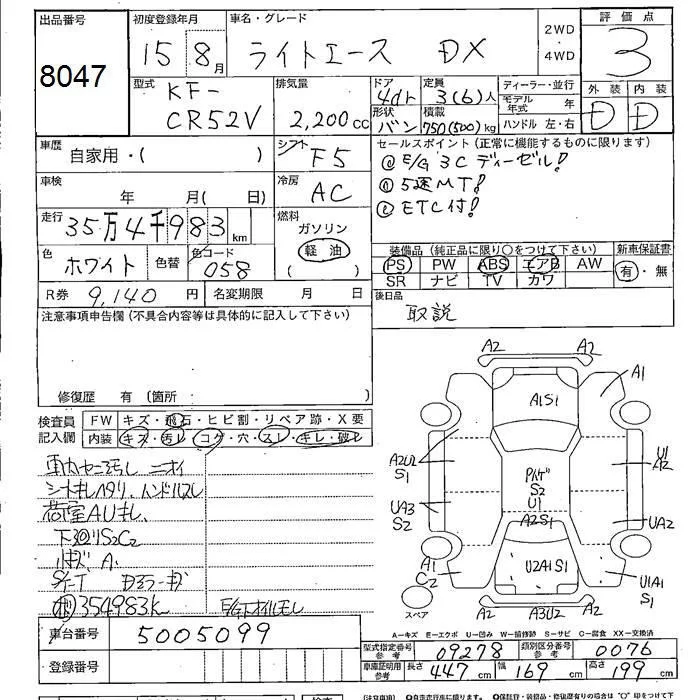 出品番号 8047
初度登録年月 15 8月
車名・グレード ライトエース DX
2WD・4WD
評価点 3
外装 D 内装 D
型式 KF-CR52V
排気量 2,200cc
ドア 4dr
形状 バン
定員 3(6)人
積載 750(500)kg
ディーラー・並行
モデル年式 年
ハンドル 左・右
車歴 自家用・( )
シフト F5
車検 年 月( 日)
冷房 AC
走行 35万4千983km
燃料 ガソリン 軽油 ( )
色 ホワイト 色替 色コード 058
R券 9,140円 名変期限 月 日
セールスポイント(正常に機能するものに限ります)
E/G 3C ディーゼル!
5速MT!
ETC付!
装備品(純正品に限り○をつけて下さい) 新車保証書
PS PW ABS エアB AW 有・無
SR ナビ TV カワ
後日品 取説
注意事項申告欄(不具合内容等は具体的に記入して下さい)
修復歴 有(箇所 )
検査員記入欄 FW キズ・飛石・ヒビ割・リペア跡・X要
内装 キズ・汚レ・コゲ・穴・スレ・キレ・破レ
荷室AUキレ、
354983k
車台番号 5005099
登録番号
A2 A2
A1
A1S1
A2U2 S1
U1 A2
S2
U1
A2S1
UA3 S2
UA2
A1 C2
U2A1S1
U1A1 S1
A2 A3U2 A2
スペア
A—キズ E—エクボ U—凹み W—補修跡 S—サビ C—腐食 XX—交換済
型式指定番号参考 09278 類別区分番号参考 0076
車庫証明用参考 長さ 447cm 幅 169cm 高さ 199cm